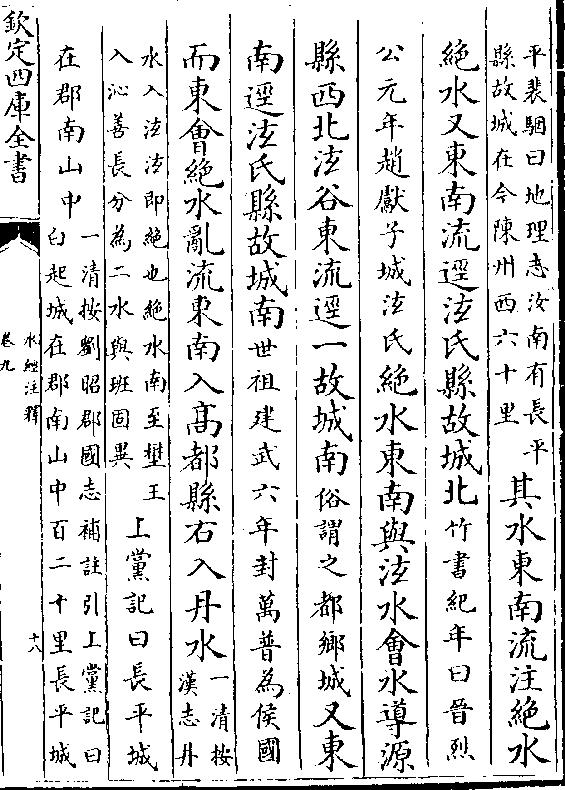 平裴駰曰地理志汝南有長平
縣故城在今陳州西六十里
其水東南流注絶水
絶水又東南流逕泫氏縣故城北竹書紀年曰晉烈
公元年趙獻子城泫氏絶水東南與泫水會水導源
縣西北泫谷東流逕一故城南俗謂之都鄉城又東
南逕泫氏縣故城南世祖建武六年封萬普為侯國
而東會絶水亂流東南入髙都縣右入丹水
一清按
漢志丹
水入泫泫即絶也絶水南至壄王
入沁善長分為二水與班固異
上黨記曰長平城
在郡南山中
一清按劉昭郡國志補註引上黨記曰
白起城在郡南山中百二十里長平城
欽定四庫全書
水經注釋
卷九
十八